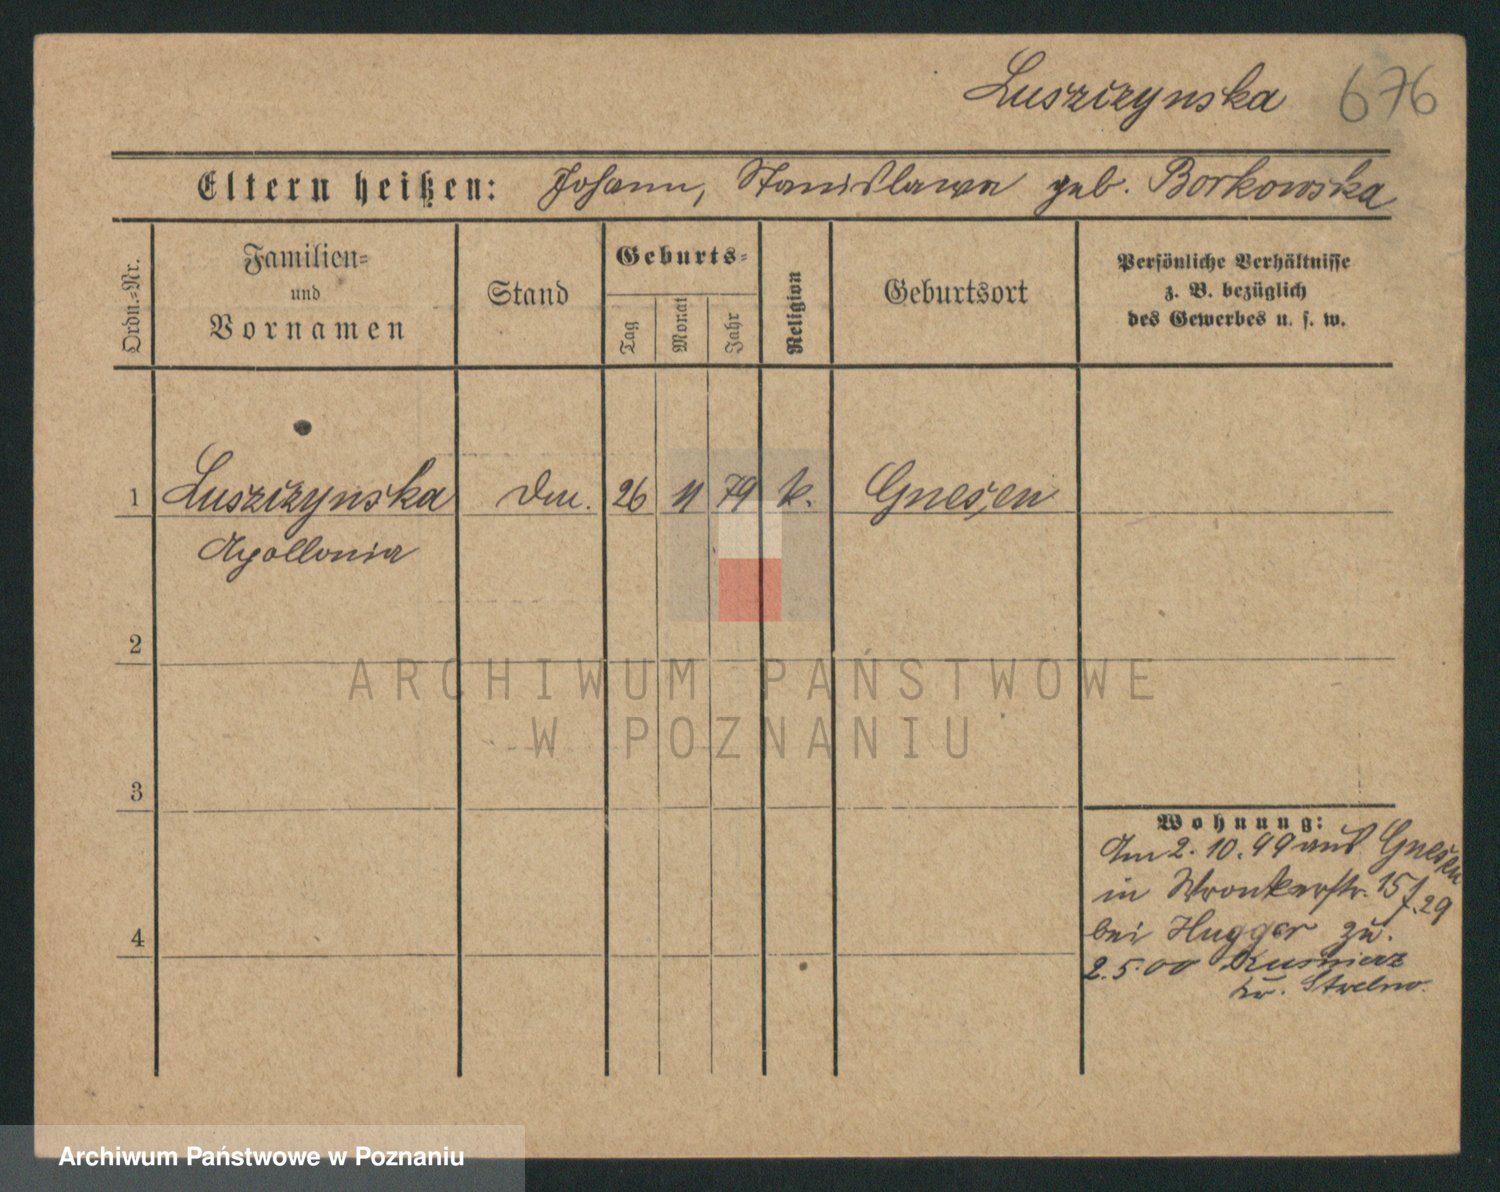 Luszczynska 676
Eltern heißen: Johann, Stanislawa geb. Borkowska
Ordn.=Nr.
Familien=
und
Vornamen
Stand
Geburts=
Tag
Monat
Jahr
Religion
Geburtsort
Persönliche Verhältnisse
z. B. bezüglich
des Gewerbes u. s. w.
1 Luszczynska 26 11 79 k. Gnesen
Apollonia
2
ARCHIWUM PAŃSTWOWE
W POZNANIU
3
Wohnung:
Am 2. 10. 99 aus Gnesen
in Wronkerstr. 15 f. 29
bei Hugger zu.
2. 5. 00 Kusnierz
Kr. Strelno.
4
Archiwum Państwowe w Poznaniu